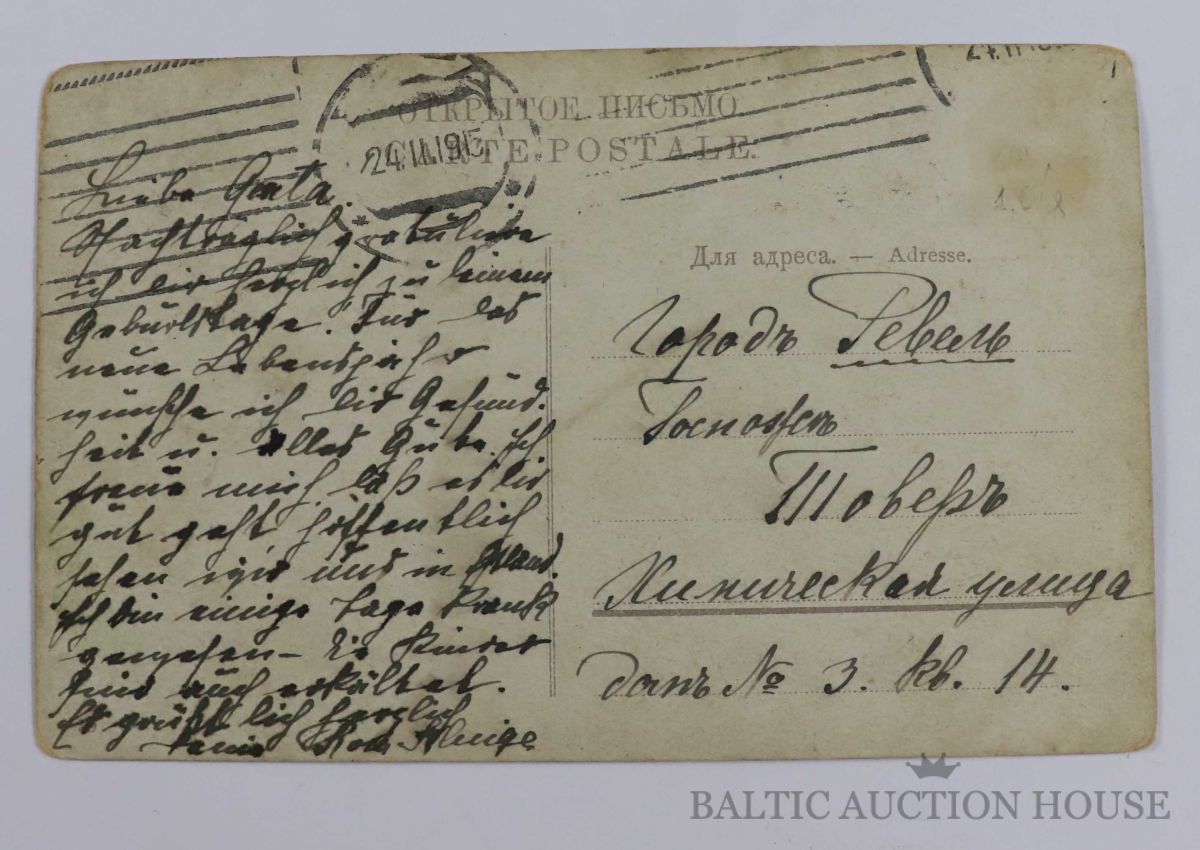 ОТКРЫТОЕ ПИСЬМО
CARTE POSTALE.
24.11.1915
24.11.15
Liebe Greta.
Nachträglich gratuliere
ich dir herzlich zu deinem
Geburtstage. Für das
neue Lebensjahr
wünsche ich dir Gesund-
heit u. alles Gute. Ich
freue mich, daß es dir
gut geht hoffentlich
sehen wir uns in
Ich bin einige Tage krank
gewesen — Die Kinder
sind auch erkältet.
Es grüßt dich herzlich
deine
Для адреса. — Adresse.
Городъ Ревель
Товеръ
Химическая улица
домъ № 3. кв. 14.
BALTIC AUCTION HOUSE